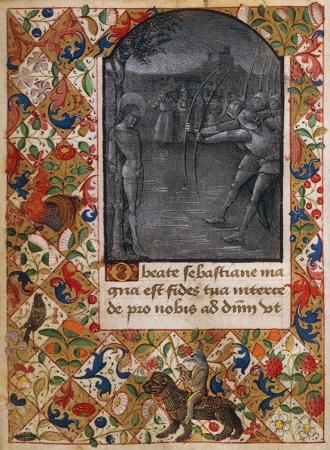 O beate sebastiane ma
gna est fides tua interce
de pro nobis ad dnm vt